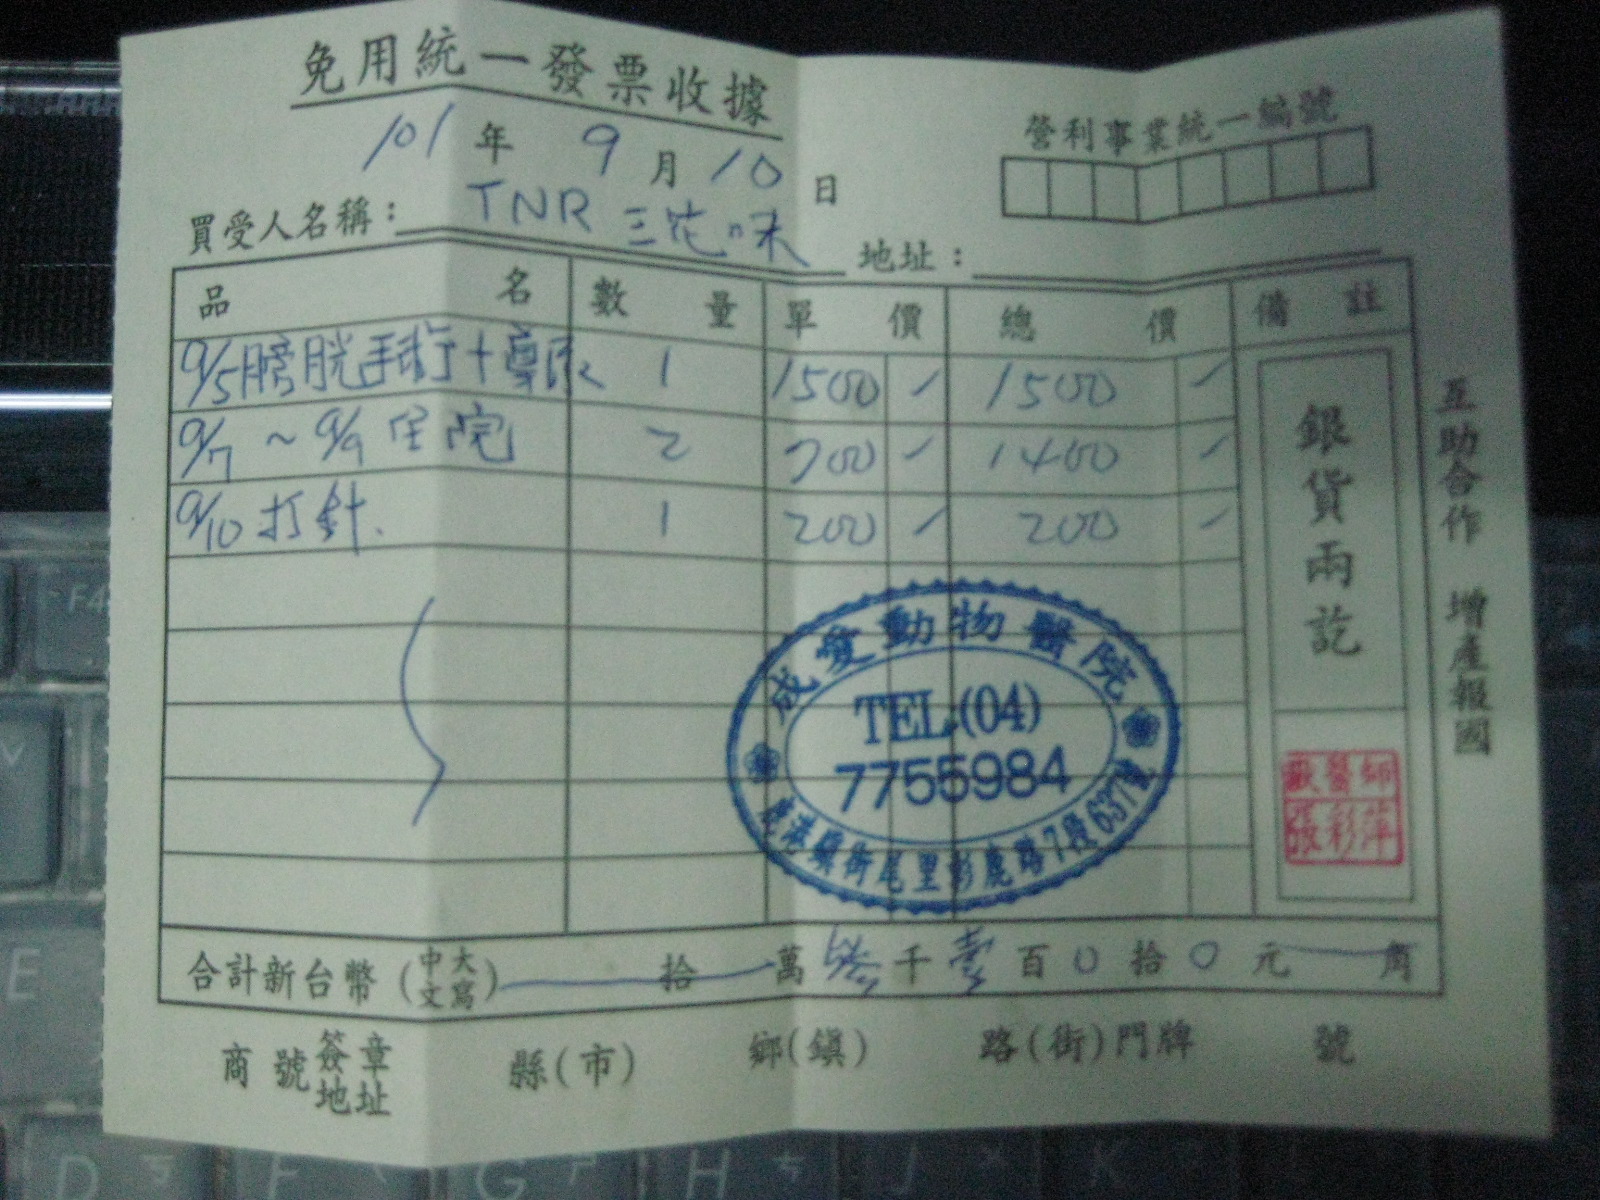 免用統一發票收據
101年9月10日
營利事業統一編號
買受人名稱：TNR 三花 咪
地址：
品名 數量 單價 總價 備註
9/5膀胱手術+導尿 1 1500 1500
9/7 ~ 9/9 住院 2 700 1400
9/10 打針. 1 200 200
銀貨兩訖
獸醫師
張彩萍
互助合作 增產報國
成愛動物醫院
TEL:(04)
7755984
鹿港鎮街尾里彰鹿路7段637號
合計新台幣(中文大寫) 拾 萬 參千壹百0拾0元 角
商號簽章地址 縣(市) 鄉(鎮) 路(街)門牌 號
F4
E
D
F
G
H
J
K